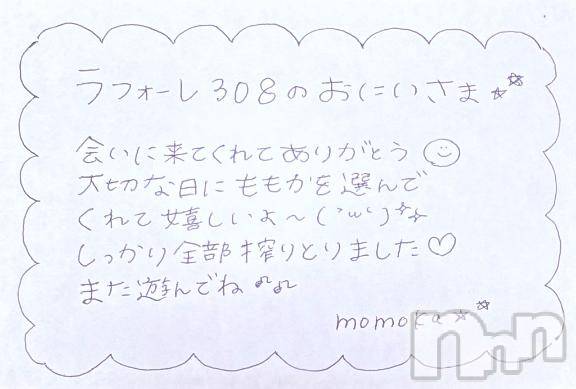 ラフォーレ308のおにいさま
会いに来てくれてありがとう
大切な日にももかを選んで
くれて嬉しいよ〜(´ω`)
しっかり全部搾りとりました♡
また遊んでね♪♫
momoka☆